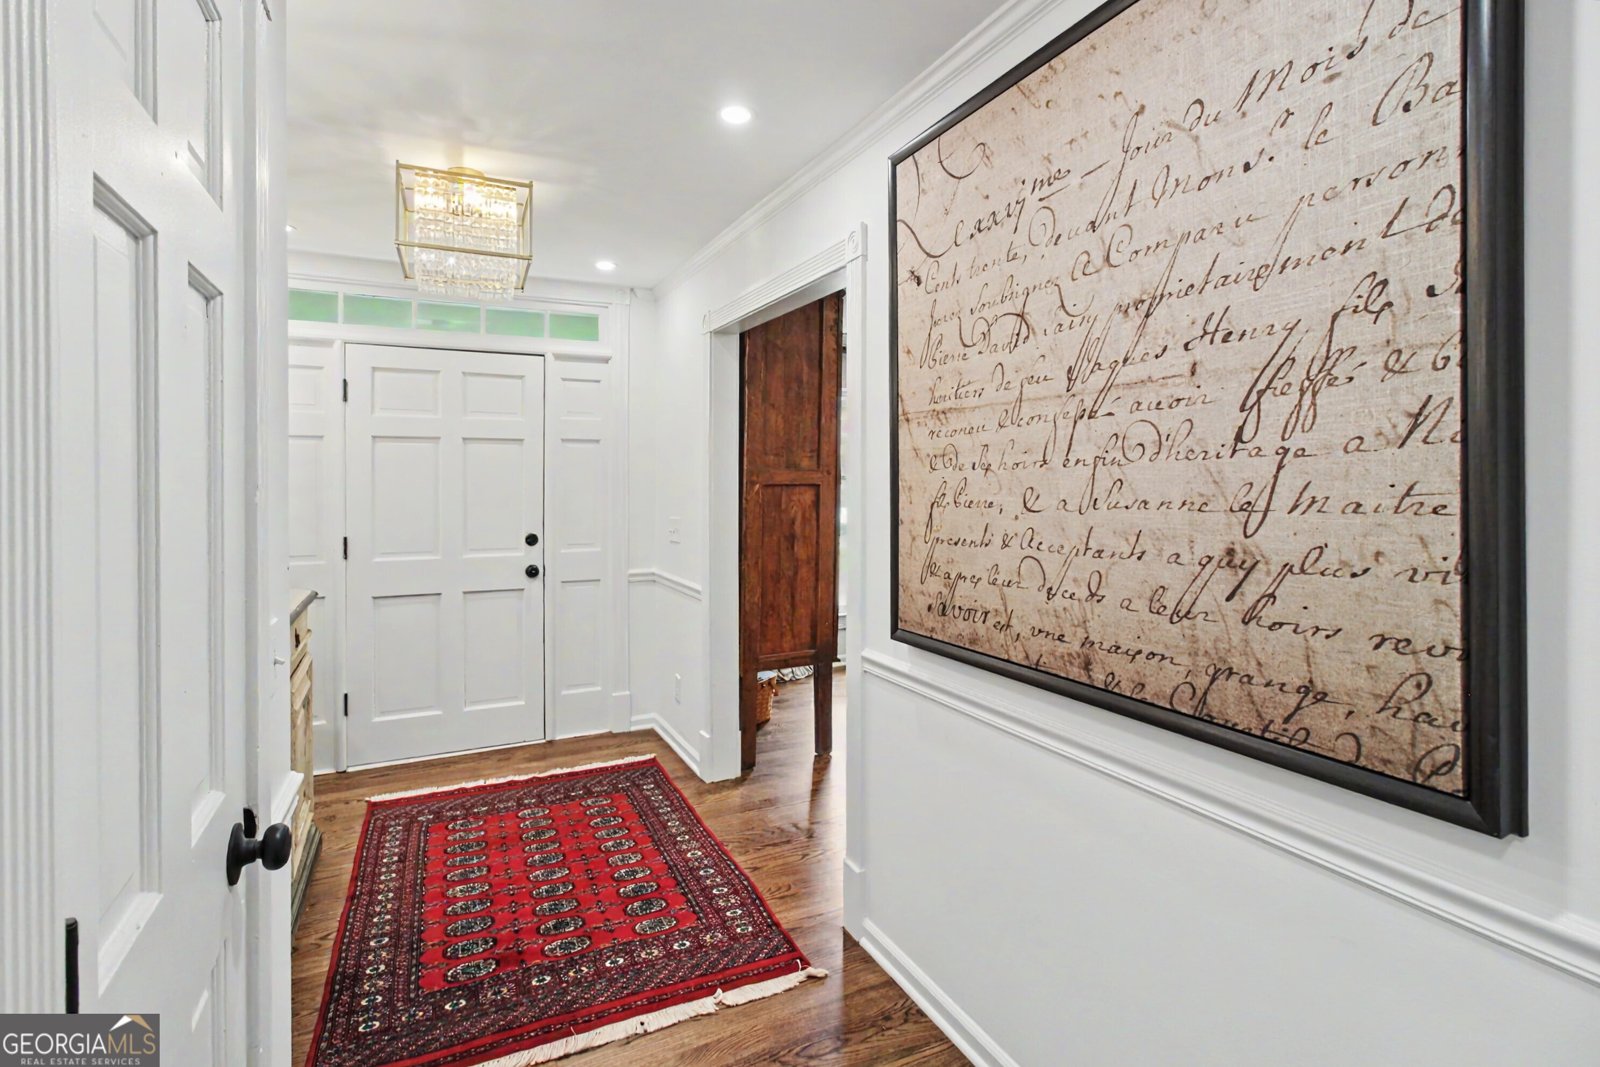 Lexxvjme Jour du Mois de
Cents trente, devant Mons.r le Ba
Soubsignez & Comparu person
Pierre David proprietairement de
heritiers de feu Jaques Henry, fils
reconeu & confessé avoir fieffé & b
& de Ses hoirs enfin d'heritage a N
fils Pierre, & a Susanne le Maitre
presents & Acceptants a quy plus vi
& apres leur deceds a leur hoirs rev
Savoir est, une maison, grange, hau
GEORGIAMLS
REAL ESTATE SERVICES